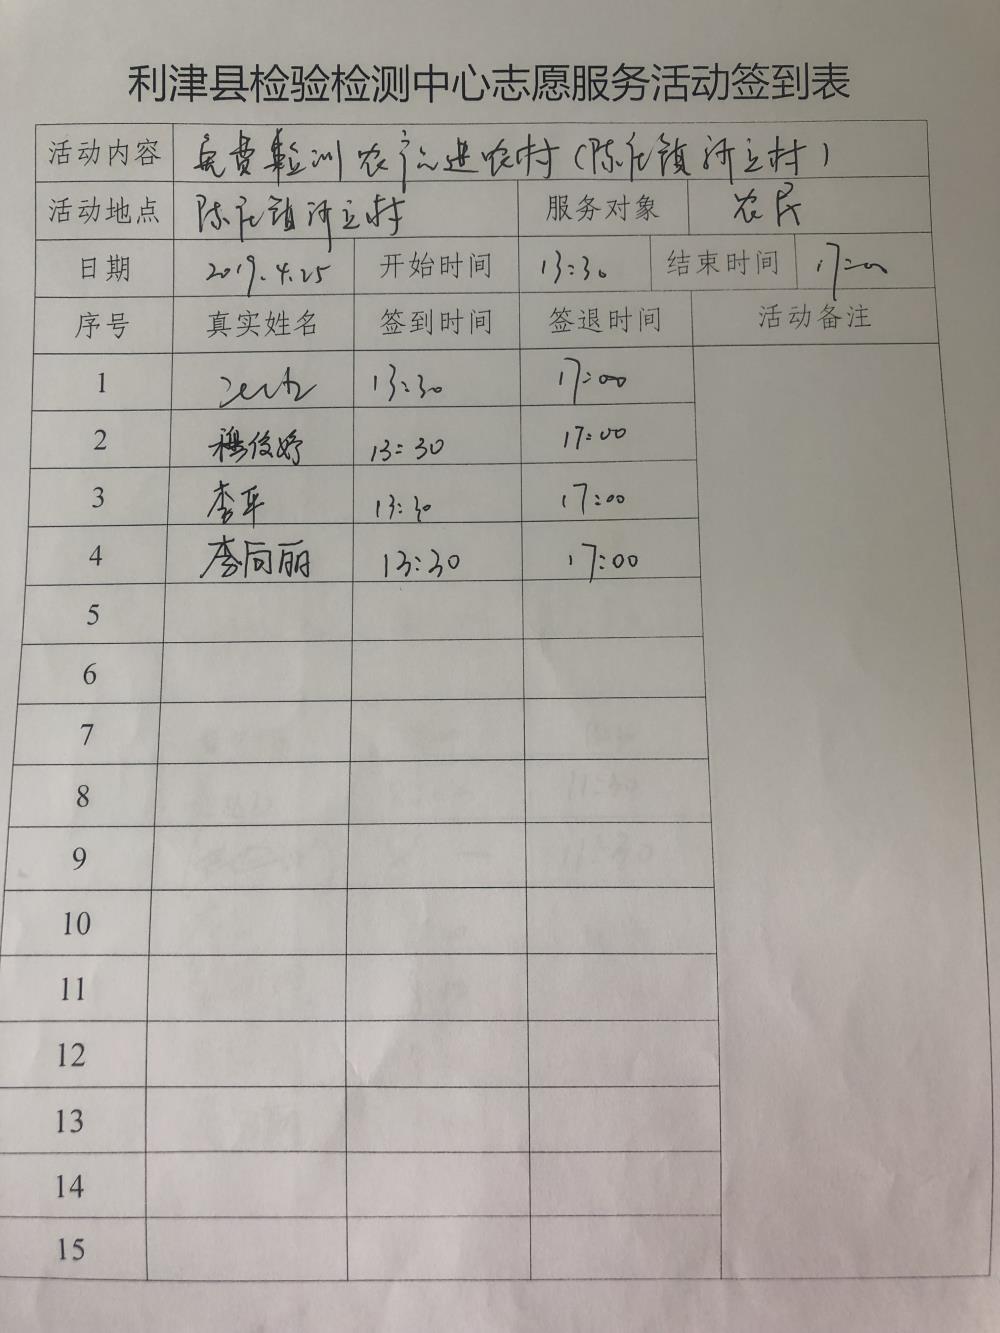 利津县检验检测中心志愿服务活动签到表
活动内容 免费检测农产品进农村（陈庄镇 村）
活动地点 陈庄镇 村 服务对象 农民
日期 2019.4.25 开始时间 13:30 结束时间 17:00
序号 真实姓名 签到时间 签退时间 活动备注
1 13:30 17:00
2 穆俊婷 13:30 17:00
3 李平 13:30 17:00
4 李向丽 13:30 17:00
5
6
7
8
9
10
11
12
13
14
15